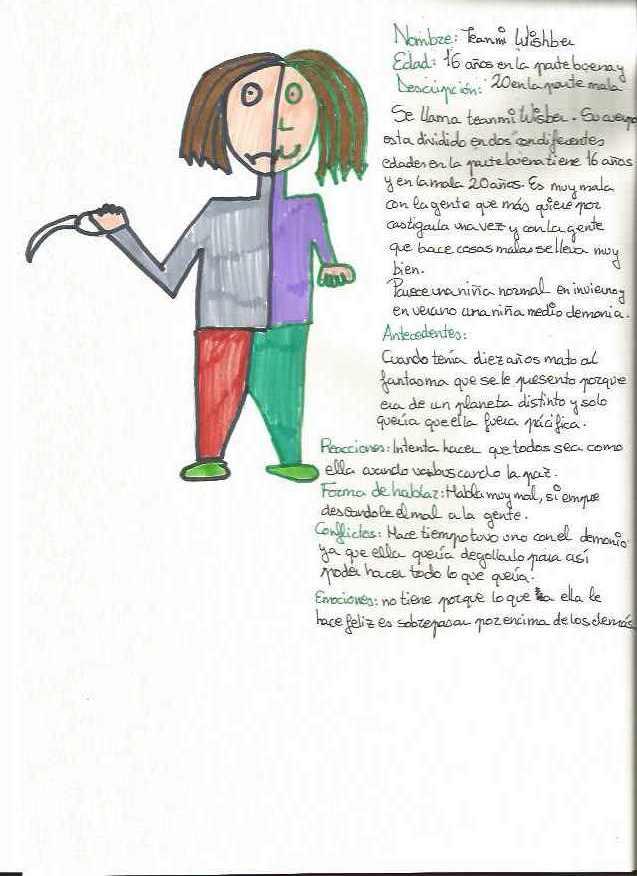 Nombre: Teanmi Wishber
Edad: 16 años en la parte buena y
Descripción: 20 en la parte mala
Se llama teanmi Wisber. Su cuerpo
esta dividido en dos con diferentes
edades en la parte buena tiene 16 años
y en la mala 20 años. Es muy mala
con la gente que más quiere por
castigarla una vez y con la gente
que hace cosas malas se lleva muy
bien.
Parece una niña normal en invierno y
en verano una niña medio demonia.
Antecedentes:
Cuando tenía diez años mato al
fantasma que se le presento porque
era de un planeta distinto y solo
quería que ella fuera pácifica.
Reacciones: Intenta hacer que todos sea como
ella cuando va buscando la paz.
Forma de hablar: Habla muy mal, siempre
deseandole el mal a la gente.
Conflictos: Hace tiempo tuvo uno con el demonio
ya que ella quería degollarlo para así
poder hacer todo lo que quería.
Emociones: no tiene porque lo que a ella le
hace feliz es sobrepasar por encima de los demás